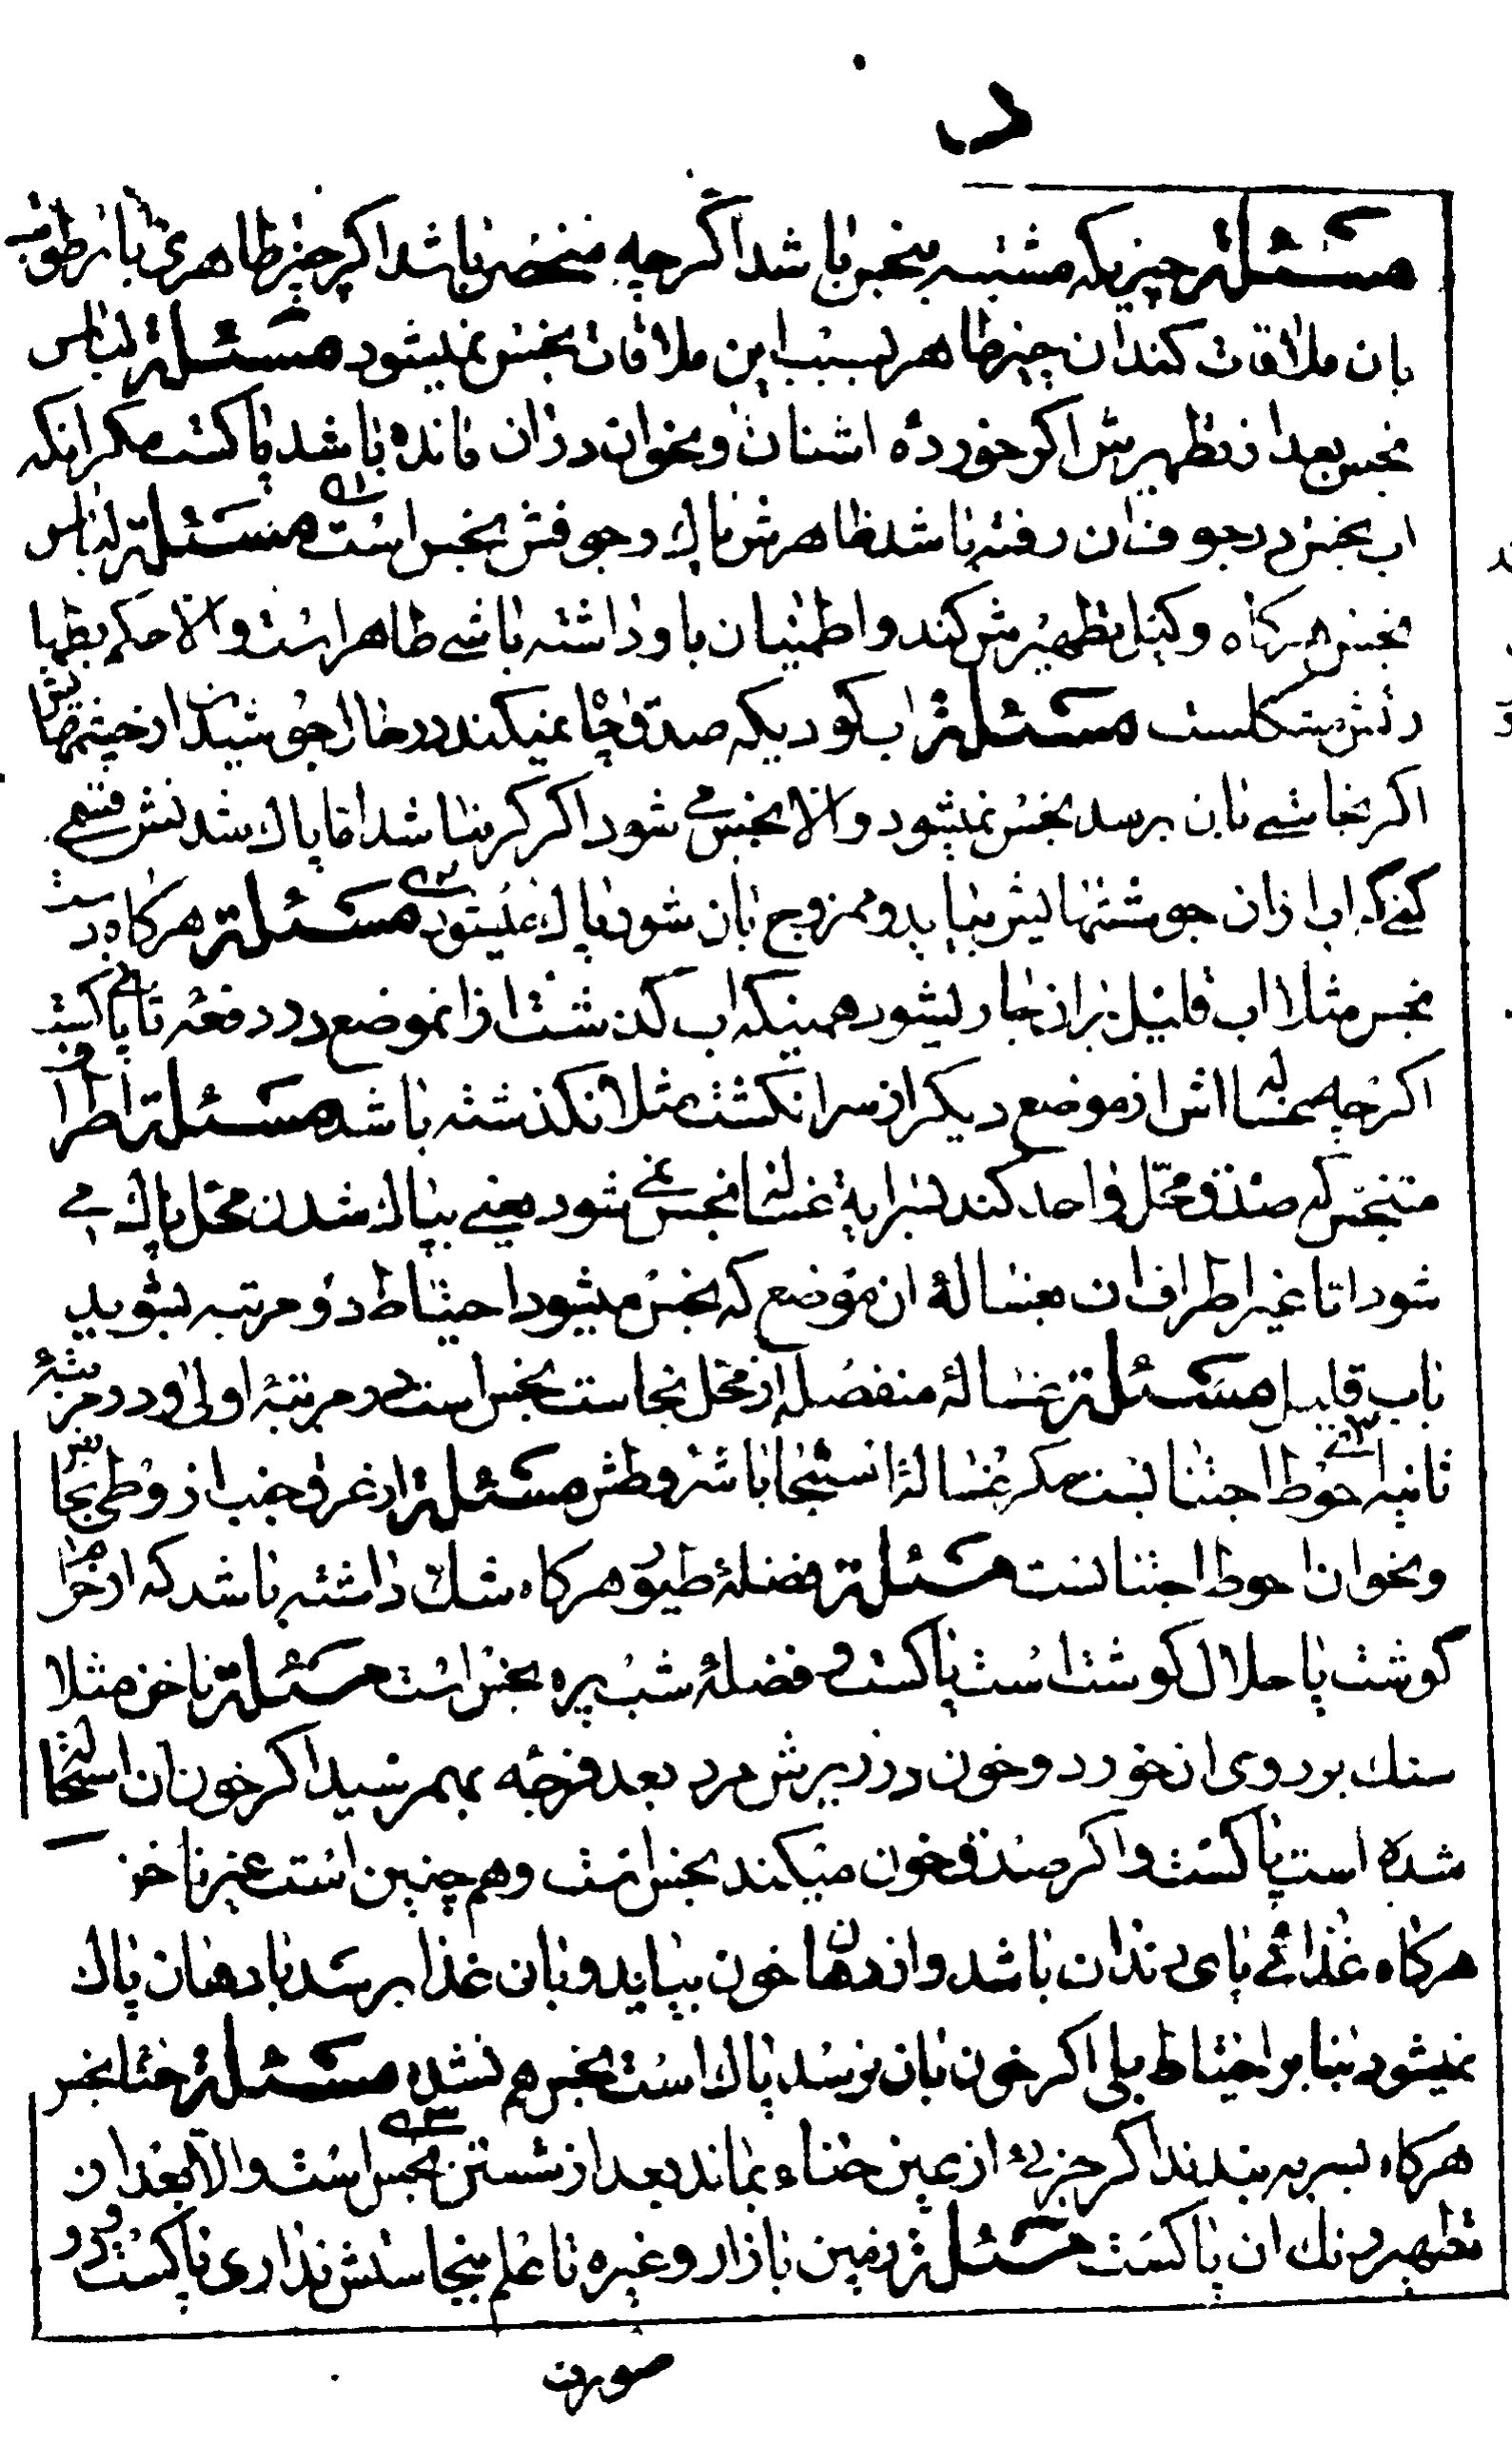 مسئلة چیزیکه مشتبه بنجس باشد اگرچه منحصر باشد اکر چیز طاهری با رطوبت
بان ملاقات کند ان چیز طاهر بسبب این ملاقات نجس نمیشود مسئلة لباس
نجس بعد از تطهیرش اکر خوردهٔ اشنان ونحوان در ان مانده باشد پاکست مکر انکه
اب نجس در جوف ان رفته باشد ظاهرش پاك وجوفش نجس است مسئلة لباس
نجس هرکاه وکیل تطهیرش کند و اطمینان باو داشته باشے طاهر است و الا حکم بطها
رتش مشکلست مسئلة اب کودیکه صدق چاه نمیکند در حال جوشیدن از چشمهایش
اکر نجاستے بان برسد نجس نمیشود والا نجس مے شود اکر کر نباشد اما پاك شدنش قسمے
کنے که اب از ان جوششهایش بیاید وممزوج بان شود پاك میشود مسئلة هرکاه دست
نجس مثلا اب قلیل بر ان جاریشود همینکه اب کذشت از انموضع در دفعه تانے پاکست
اکرچه غساله اش از موضع دیکر از سر انکشت مثلا نکذشته باشد مسئلة اطراف
متنجس که صدق محل واحد کند بسرایة غساله نجس نمے شود یعنے بپاك شدن محل پاك مے
شود اما غیر اطراف ان بغسالهٔ ان موضع که نجس میشود احتیاط دو مرتبه بشوید
باب قلیل مسئلة غسالهٔ منفصله از محل نجاست نجس است در مرتبهٔ اولی و در مرتبهٔ
ثانیه احوط اجتنابست مکر غسالهٔ استنجا با شروطش مسئلة از عرق جنب از وطی بجا
ونحوان احوط اجتنابست مسئلة فضلهٔ طیور هرکاه شك داشته باشد که از حرام
کوشت یا حلال کوشت است پاکست و فضلهٔ شب پره نجس است مسئلة ناخن مثلا
سنك بر روی ان خورد و خون در زیرش مرد بعد فرجه بهمرسید اکر خون ان استحاله
شده است پاکست و اکر صدق خون میکند نجس است وهم چنین است غیر ناخن
هرکاه غذائے پای دندان باشد و از دهان خون بیاید و بان غذا برسد با دهان پاك
نمیشود بنابر احتیاط بلی اکر خون بان نرسد پاك است نجس هم نشده مسئلة حنا نجس
هرکاه بسر به بندند اکر جزئے از عین حناء بماند بعد از شستن نجس است والا بعد از
تطهیر رنك ان پاکست مسئلة زمین بازار وغیره تا علم بنجاستش نداری پاکست و در
صورت